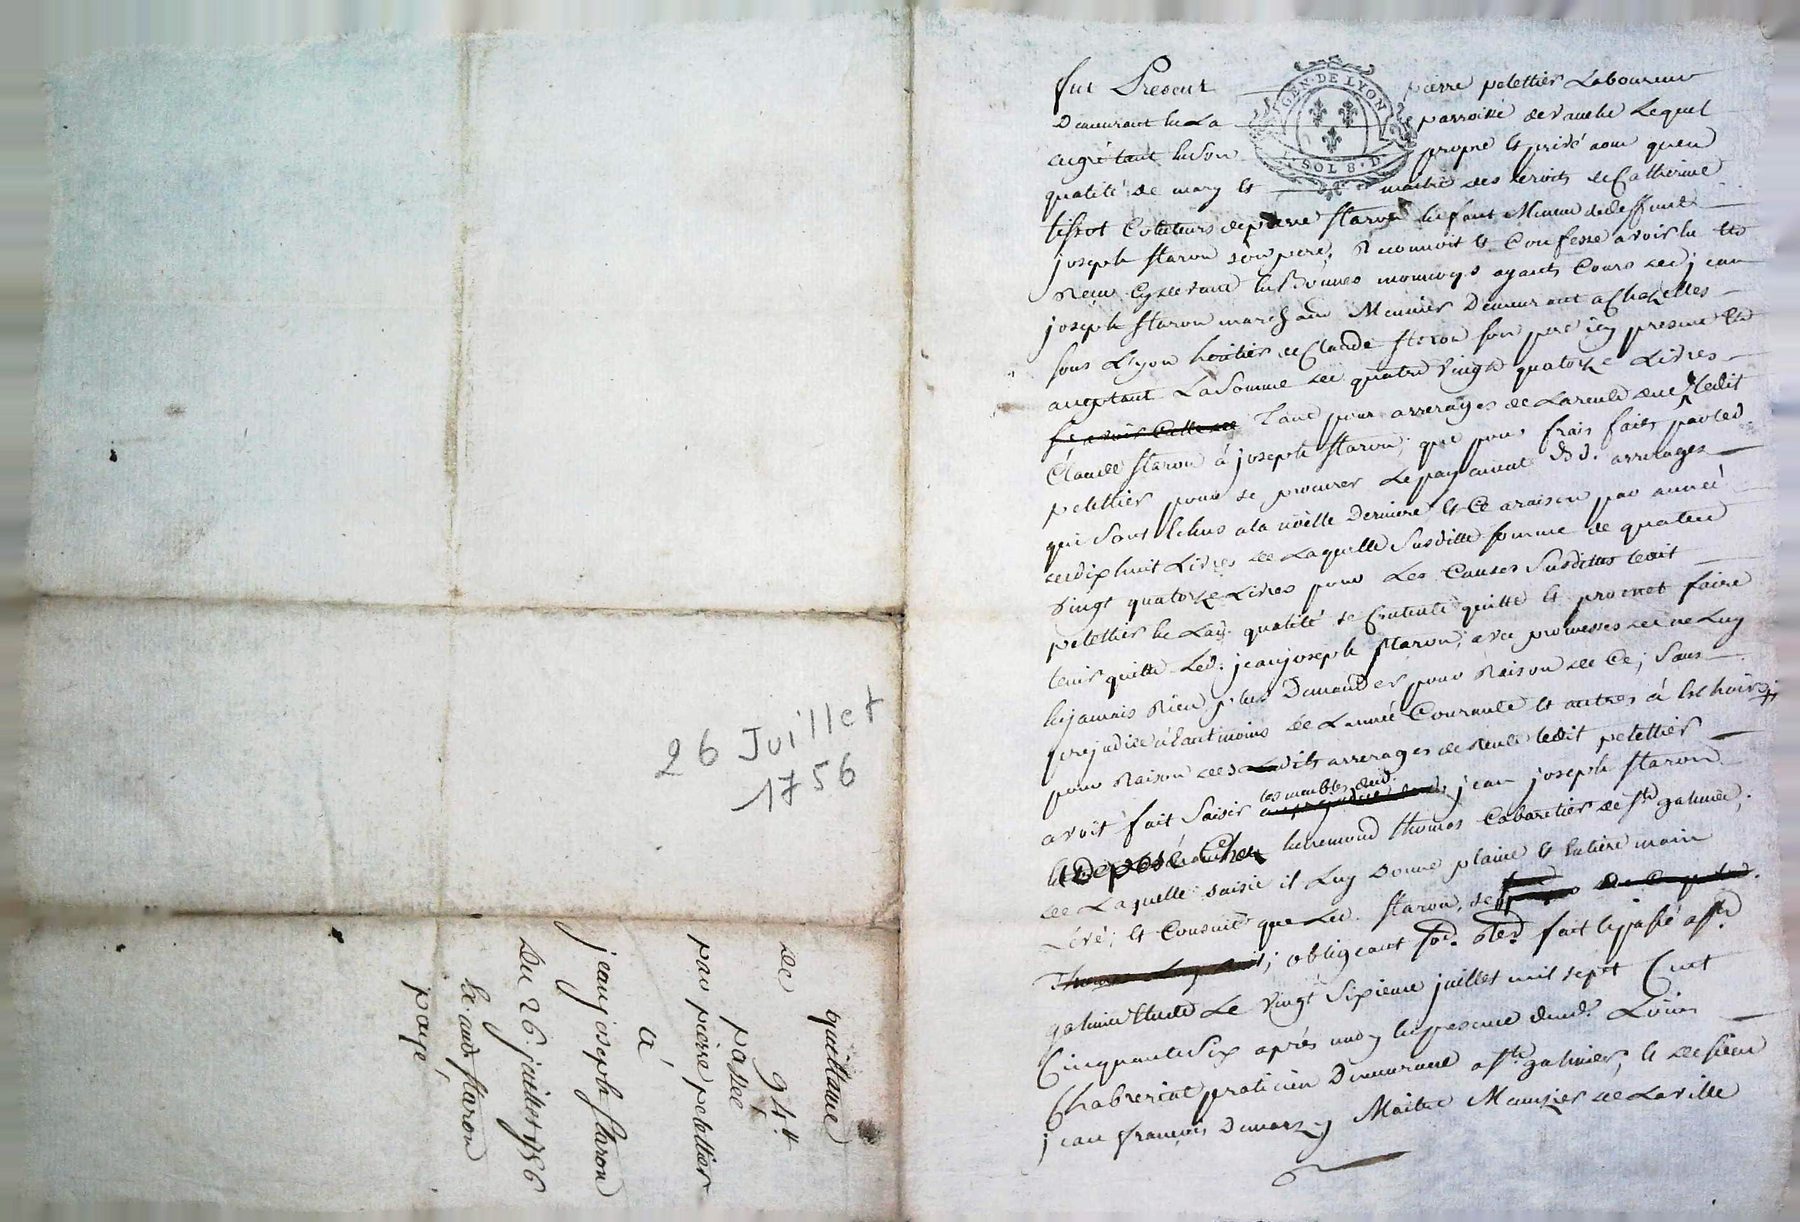 26 Juillet
1756
quittance
de 94ᵗᵗ
passée
par pierre pelettier
à
jean joseph staron
Du 26. juillet 1756
staron
payé
GEN. DE LYON
SOL 8. D.
fut Present pierre pelettier Laboureur
Demeurant paroisse de Lequel
en son propre et privé nom quen
qualité de mary et maitre des droits de Catherine
tissot de pierre staron Enfant Mineur de deffunt
joseph staron son pere, Reconnoit et Confesse avoir eu et
Receu monnoyes ayants Cours de jean
joseph staron marchand Meunier Demeurant a Chazelles
sous Lyon heritier de Claude staron son pere icy present et
aceptant La somme de quatre vingt quatorze Livres
tant pour arrerages de La rente due ledit
Claude staron à joseph staron, que pour frais faits par led
pelettier pour se procurer Le payement arrerages
qui sont Echus a la noëlle Derniere et Ce a raison par année
de dix huit Livres de Laquelle Susditte somme de quatre
vingt quatorze Livres pour Les Causes Susdittes ledit
pelettier En Lad. qualité se Contente quitte et promet faire
tenir quitte Led. jean joseph staron, avec promesses de ne Luy
En jamais Rien plus Demander pour Raison de Ce, sans
prejudice neantmoins de Lannée Courante et autres à Echoir,
pour Raison desdits arrerages de Rente ledit pelettier
avoit fait saisir les meubles dud. jean joseph staron
Deposé Chez thomas Cabaretier de Sᵗ galmier,
de Laquelle saisie il Luy Donne plaine et Entiere main
Levé, et Consent que Led. staron, se
obligeant fait et passé a Sᵗ
galmier Etude Le vingt sixieme juillet mil sept Cent
Cinquante Six après midy En presence de Louis
Chabreriat praticien Demeurant a Sᵗ galmier, et de sieur
jean françois Maitre Menuizier de La ville